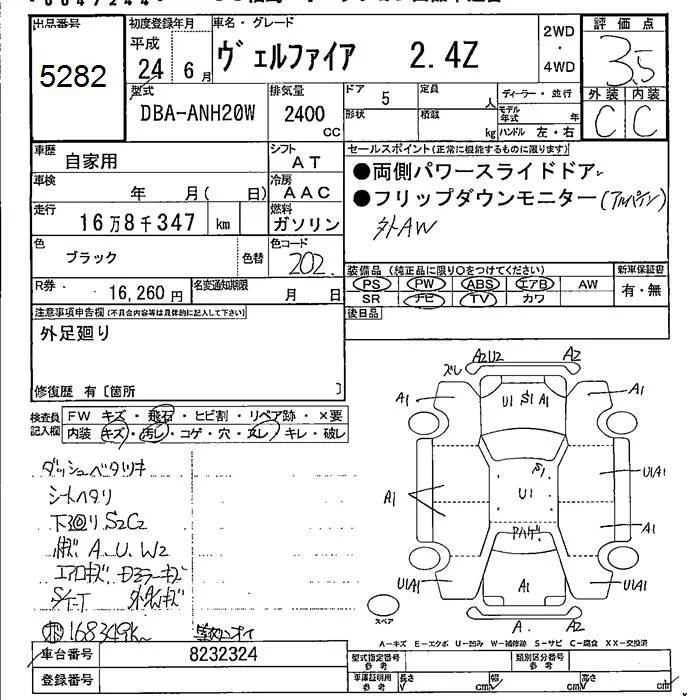 出品番号
5282
初度登録年月
平成
24年 6月
車名・グレード
ヴェルファイア 2.4Z
2WD
・
4WD
評価点
3.5
外装 内装
C C
型式
DBA-ANH20W
排気量
2400
CC
ドア
5
定員
人
形状
積載
kg
ディーラー・並行
モデル
年式 年
ハンドル 左・右
車歴
自家用
シフト
AT
車検
年 月( 日)
冷房
AAC
走行
16万8千347 km
燃料
ガソリン
色
ブラック
色替
色コード
202
R券
16,260円
名変通知期限
月 日
セールスポイント(正常に機能するものに限ります)
●両側パワースライドドア
●フリップダウンモニター(アルパイン)
外AW
装備品 (純正品に限り○をつけてください)
PS PW ABS エアB AW
SR ナビ TV カワ
新車保証書
有・無
後日品
注意事項申告欄(不具合内容等は具体的に記入して下さい)
外足廻り
修復歴 有〔箇所 〕
検査員
記入欄
FW キズ・飛石・ヒビ割・リペア跡・×要
内装 キズ・汚レ・コゲ・穴・スレ・キレ・破レ
ダッシュベタツキ
シートヘタリ
下回りS2C2
A.U.W2
168349K
ズレ A2U2 A2
A1 U1 S1 A1 A1
S1
A1 U1 U1A1
A1
U1A1 A1 U1A1
スペア
A. A2
A-キズ E-エクボ U-凹み W-補修跡 S-サビ C-腐食 XX-交換済
車台番号
8232324
登録番号
型式指定番号
参考
類別区分番号
参考
車庫証明用
参考
長さ cm 幅 cm 高さ cm